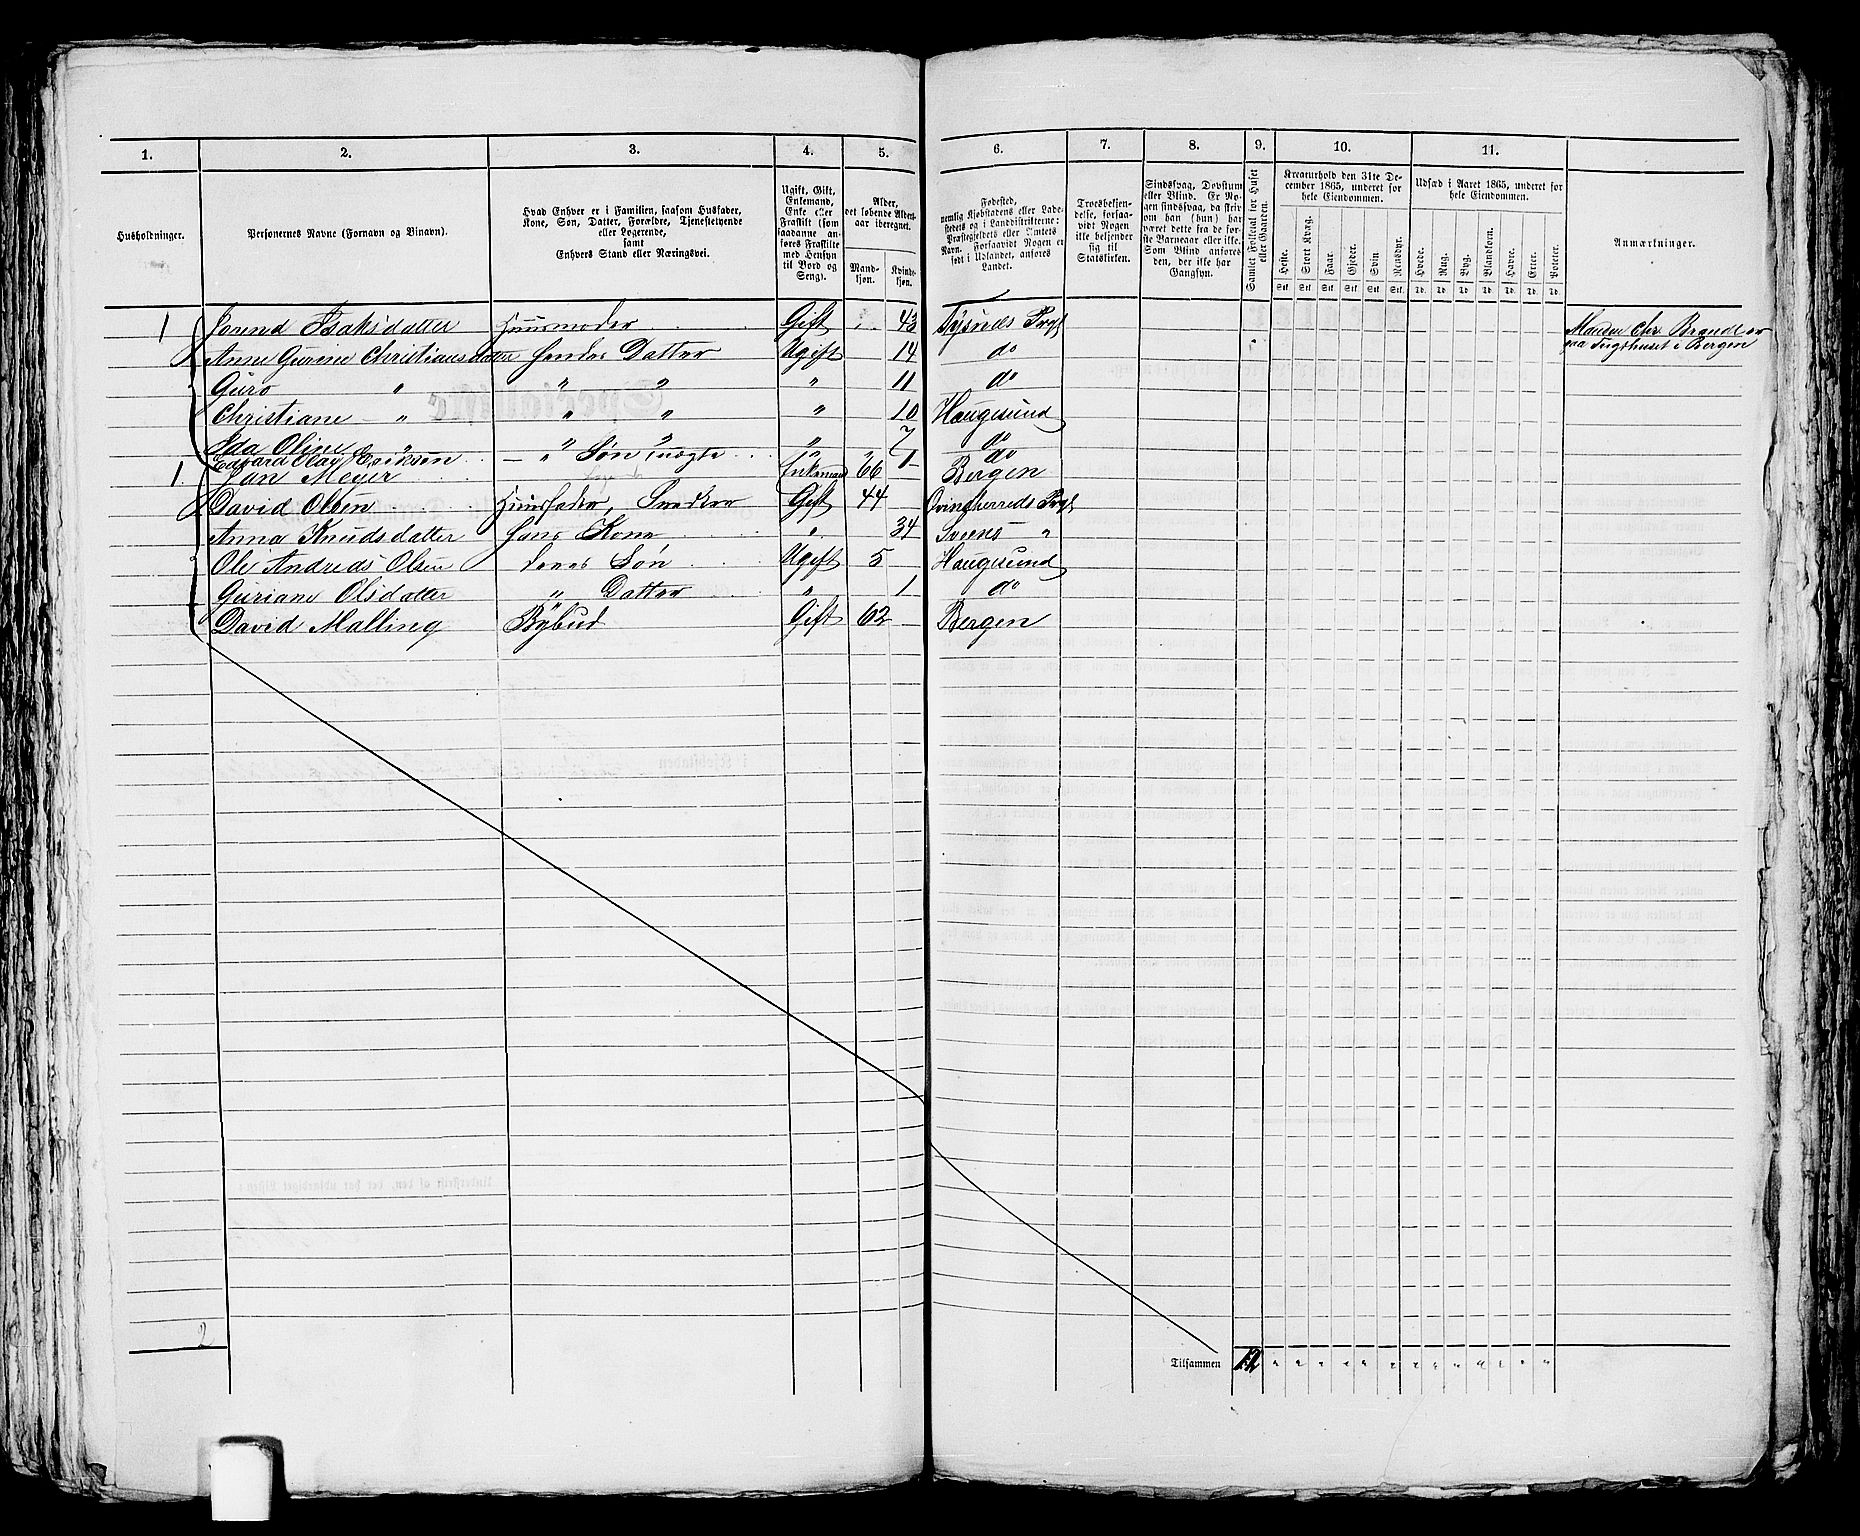 1. 2. 3. 4. 5. 6. 7. 8. 9. 10. 11.
Husholdninger.
Personernes Navne (Fornavn og Binavn).
Hvad Enhver er i Familien, saasom Husfader,
Kone, Søn, Datter, Forældre, Tjenestetyende
eller Logerende,
samt
Enhvers Stand eller Næringsvei.
Ugift, Gift,
Enkemand,
Enke eller
Fraskilt (som
saadanne an-
føres Fraskilte
med Hensyn
til Bord og
Seng).
Alder,
det løbende Alders-
aar iberegnet.
Mand-
kjøn.
Kvinde-
kjøn.
Fødested,
nemlig Kjøbstadens eller Lade-
stedets og i Landdistrikterne:
Præstegjeldets eller Amtets
Navn. Forsaavidt Nogen er
født i Udlandet, anføres
Landet.
Troesbekjen-
delse, forsaa-
vidt Nogen
ikke bekjender
sig til
Statskirken.
Sindssvag, Døvstum
eller Blind. Er No-
gen sindssvag, da skriv
om han (hun) har
været dette fra de før-
ste Barneaar eller ikke.
Som Blind anføres
den, der ikke har
Gangsyn.
Samlet Folketal for Huset
eller Gaarden.
Kreaturhold den 31te De-
cember 1865, underet for
hele Eiendommen.
Heste. Stort Kvæg. Faar. Gjeder. Svin. Rensdyr.
Stk. Stk. Stk. Stk. Stk. Stk.
Udsæd i Aaret 1865, underet for
hele Eiendommen.
Hvede. Rug. Byg. Blandkorn. Havre. Erter. Poteter.
Td. Td. Td. Td. Td. Td. Td.
Anmærkninger.
1 Isaksdatter Huusmoder Gift 43 Tysnæs Prgj Chr. Brandt er
Anne Gurine Christiansdatter hendes Datter Ugift 14 do paa Tugthuset i Bergen
Guro " " " " 11 do
Christiane " " " " 10 Haugesund
Ida Oline " " " 7 do
Edvard Olay Eriksen " Søn uægte " 1 do
1. Jan Meyer Enkemand 66 Bergen
David Olsen Huusfader, Snedker Gift 44 Qvindherreds Prgj
Anna Knudsdatter hans Kone " 34 "
Ole Andreas Olsen deres Søn Ugift 5 Haugesund
Guriane Olsdatter " Datter " 1 do
David Malling Bÿbud Gift 62 Bergen
2
Tilsammen 12 " " " " " " " " " " " " "